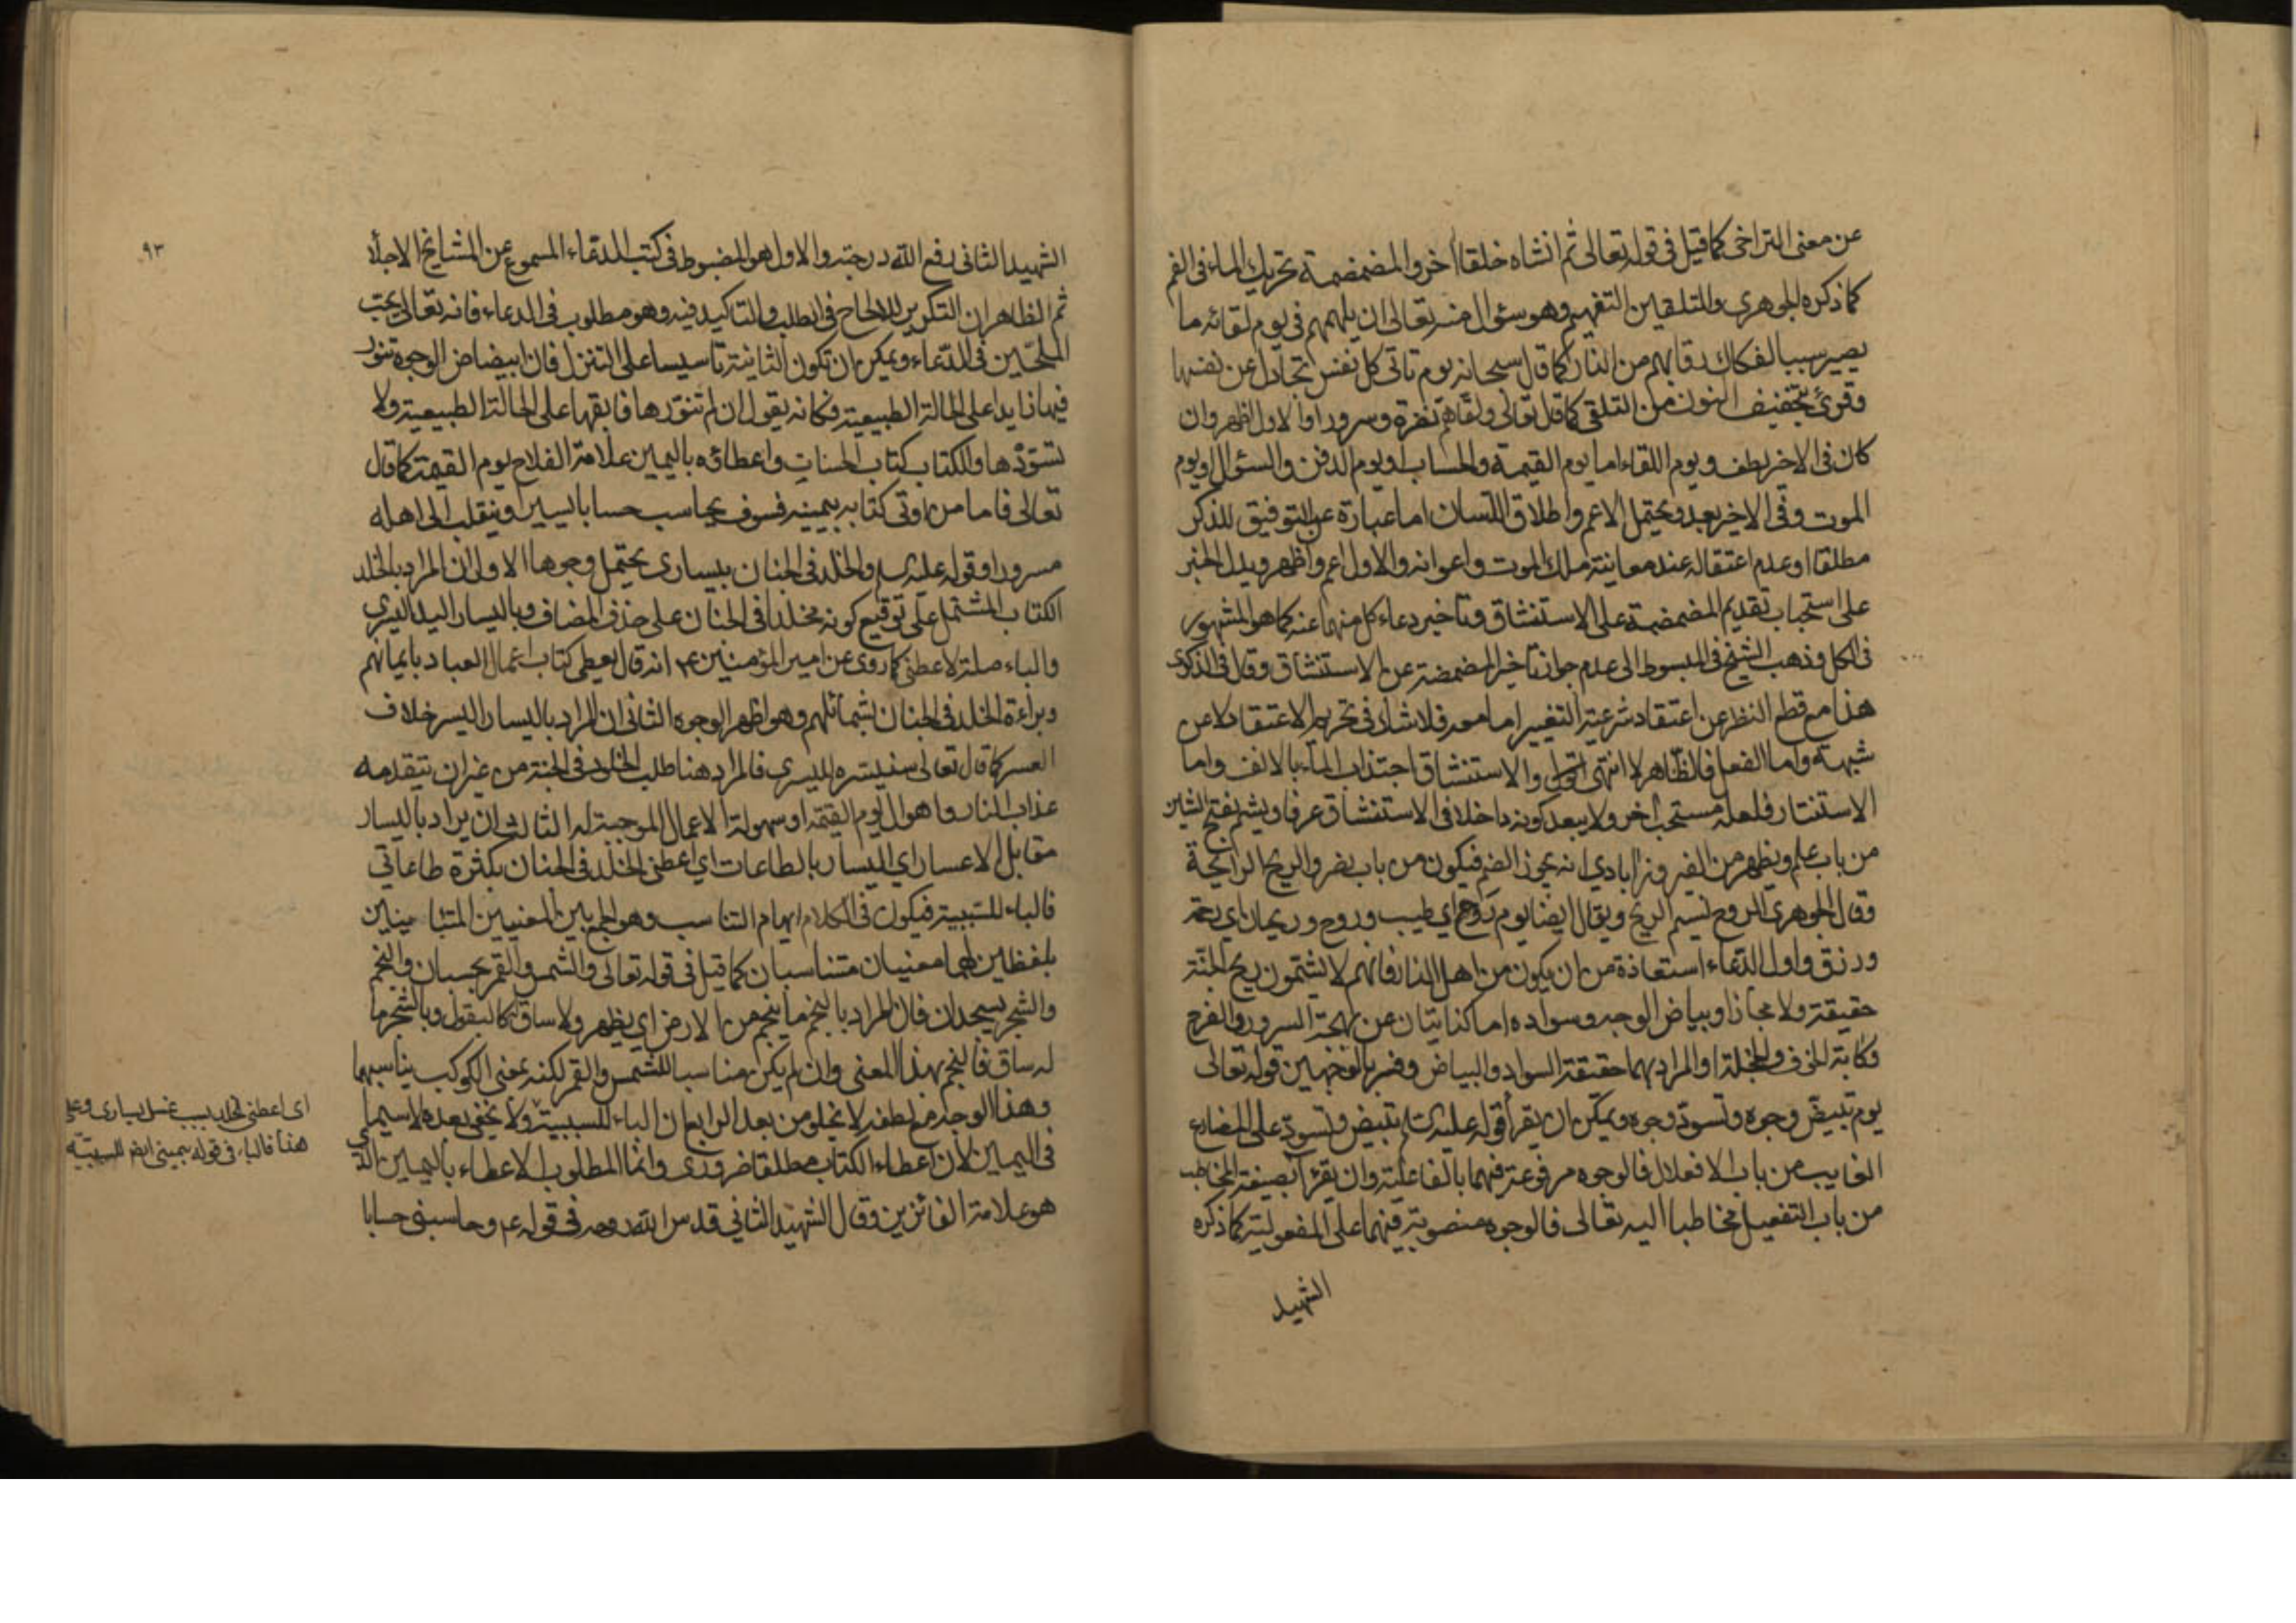 عن معنى التراخى كما قيل فى قوله تعالى ثم انشاه خلقا اخر والمضمضة تحريك الماء فى الفم
كما ذكره الجوهرى والتلقين التفهيم وهو سئوال منه تعالى ان يلهمهم فى يوم لقائه ما
يصير سببا لفكاك رقابهم من النار كما قال سبحانه يوم تاتى كل نفس تجادل عن نفسها
وقرئ بتخفيف النون من التلقى كما قال تعالى ولقاهم نضرة وسرورا والاول اظهر وان
كان فى الاخر لطف ويوم اللقاء اما يوم القيمة والحساب او يوم الدفن والسئوال او يوم
الموت وفى الاخير بعد ويحتمل الاعم واطلاق اللسان اما عبارة عن التوفيق للذكر
مطلقا او عدم اعتقاله عند معاينة ملك الموت واعوانه والاول اعم واظهر ويدل الخبر
على استحباب تقديم المضمضة على الاستنشاق وتاخير دعاء كل منهما عنه كما هو المشهور
فى الكل وذهب الشيخ فى المبسوط الى عدم جواز تاخير المضمضة عن الاستنشاق وقال فى الذكرى
هذا مع قطع النظر عن اعتقاد شرعية التغيير اما معه فلا شك فى تحريم الاعتقاد لا عن
شبهة واما الفعل فالظاهر لا انتهى اقول والاستنشاق اجتذاب الماء بالانف واما
الاستنثار فلعله مستحب اخر ولا يبعد كونه داخلا فى الاستنشاق عرفا ويشم بفتح الشين
من باب علم ويظهر من الفيروزابادي انه يجوز الضم فيكون من باب نصر والريح الرايحة
وقال الجوهرى الروح نسيم الريح ويقال ايضا يوم روح اي طيب وروح وريحان اي رحمة
ورزق واول الدعاء استعاذة من ان يكون من اهل النار فانهم لا يشتمون ريح الجنة
حقيقة ولا مجازا وبياض الوجه وسواده اما كنايتان عن بهجة السرور والفرح
وكابة الخوف والخجلة او المراد بهما حقيقة السواد والبياض وفسر بالوجهين قوله تعالى
يوم تبيض وجوه وتسود وجوه ويمكن ان يقرأ قوله عليه السلم تبيض وتسود على المضارع
الغايب من باب الافعلال فالوجوه مرفوعة فيهما بالفاعلية وان يقرأ بصيغة المخاطب
من باب التفعيل مخاطبا اليه تعالى فالوجوه منصوبة فيهما على المفعولية كما ذكره
الشهيد
٩٣
الشهيد الثانى رفع الله درجته والاول هو المضبوط فى كتب الدعاء المسموع عن المشايخ الاجلأ
ثم الظاهر ان التكرير للالحاح فى الطلب والتاكيد فيه وهو مطلوب فى الدعاء فانه تعالى يحب
الملحين فى الدعاء ويمكن ان تكون الثانية تاسيسا على التنزل فان ابيضاض الوجوه تنور
فيها زايدا على الحالة الطبيعية فكانه يقول ان لم تنورها فابقها على الحالة الطبيعية ولا
تسودها والكتاب كتاب الحسنات واعطاؤه باليمين علامة الفلاح يوم القيمة كما قال
تعالى فاما من اوتى كتابه بيمينه فسوف يحاسب حسابا يسيرا وينقلب الى اهله
مسرورا وقوله عليه السلم والخلد فى الجنان بيسارى يحتمل وجوها الاول ان المراد بالخلد
الكتاب المشتمل على توقيع كونه مخلدا فى الجنان على حذف المضاف وباليسار اليد اليسرى
والباء صلة لاعطنى كما روى عن امير المؤمنين ع م انه قال يعطى كتاب اعمال العباد بايمانهم
وبراءة الخلد فى الجنان بشمائلهم وهو اظهر الوجوه الثانى ان المراد باليسار اليسر خلاف
العسر كما قال تعالى سنيسره لليسرى فالمراد هنا طلب الخلود فى الجنة من غير ان يتقدمه
عذاب النار واهوال يوم القيمة او سهولة الاعمال الموجبة له الثالث ان يراد باليسار
مقابل الاعسار اي اليسار بالطاعات اي اعطنى الخلد فى الجنان بكثرة طاعاتي
فالباء للسببية فيكون فى الكلام ايهام التناسب وهو الجمع بين المعنيين المتباينين
بلفظين لهما معنيان متناسبان كما قيل فى قوله تعالى والشمس والقمر بحسبان والنجم
والشجر يسجدان فان المراد بالنجم ما ينجم من الارض اي يظهر ولا ساق له كالبقول وبالشجر ما
له ساق فالنجم بهذا المعنى وان لم يكن مناسبا للشمس والقمر لكنه بمعنى الكوكب يناسبهما
وهذا الوجه مع لطفه لا يخلو من بعد الرابع ان الباء للسببية ولا يخفى بعده لا سيما
فى اليمين لان اعطاء الكتاب مطلقا ضرورى وانما المطلوب الاعطاء باليمين الذي
هو علامة الفائزين وقال الشهيد الثانى قدس الله روحه فى قوله ع م وحاسبنى حسابا
اى اعطنى الخلد بسبب غسل يسارى وعلى
هذا فالباء فى قوله بيمينى ايضا للسببية